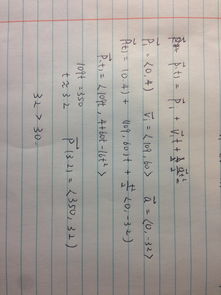 p⃗(t) = p⃗ᵢ + v⃗ᵢt + ½ a⃗t²
p⃗ᵢ = <0,4> v⃗ᵢ = <109,60> a⃗ = <0,-32>
p⃗(t) = (0,4) + (109,60)t + ½<0,-32)
p⃗(t) = <109t, 4+60t-16t²>
109t = 350
t ≈ 3.2 p⃗(3.2) = <350, 32)
32 > 30